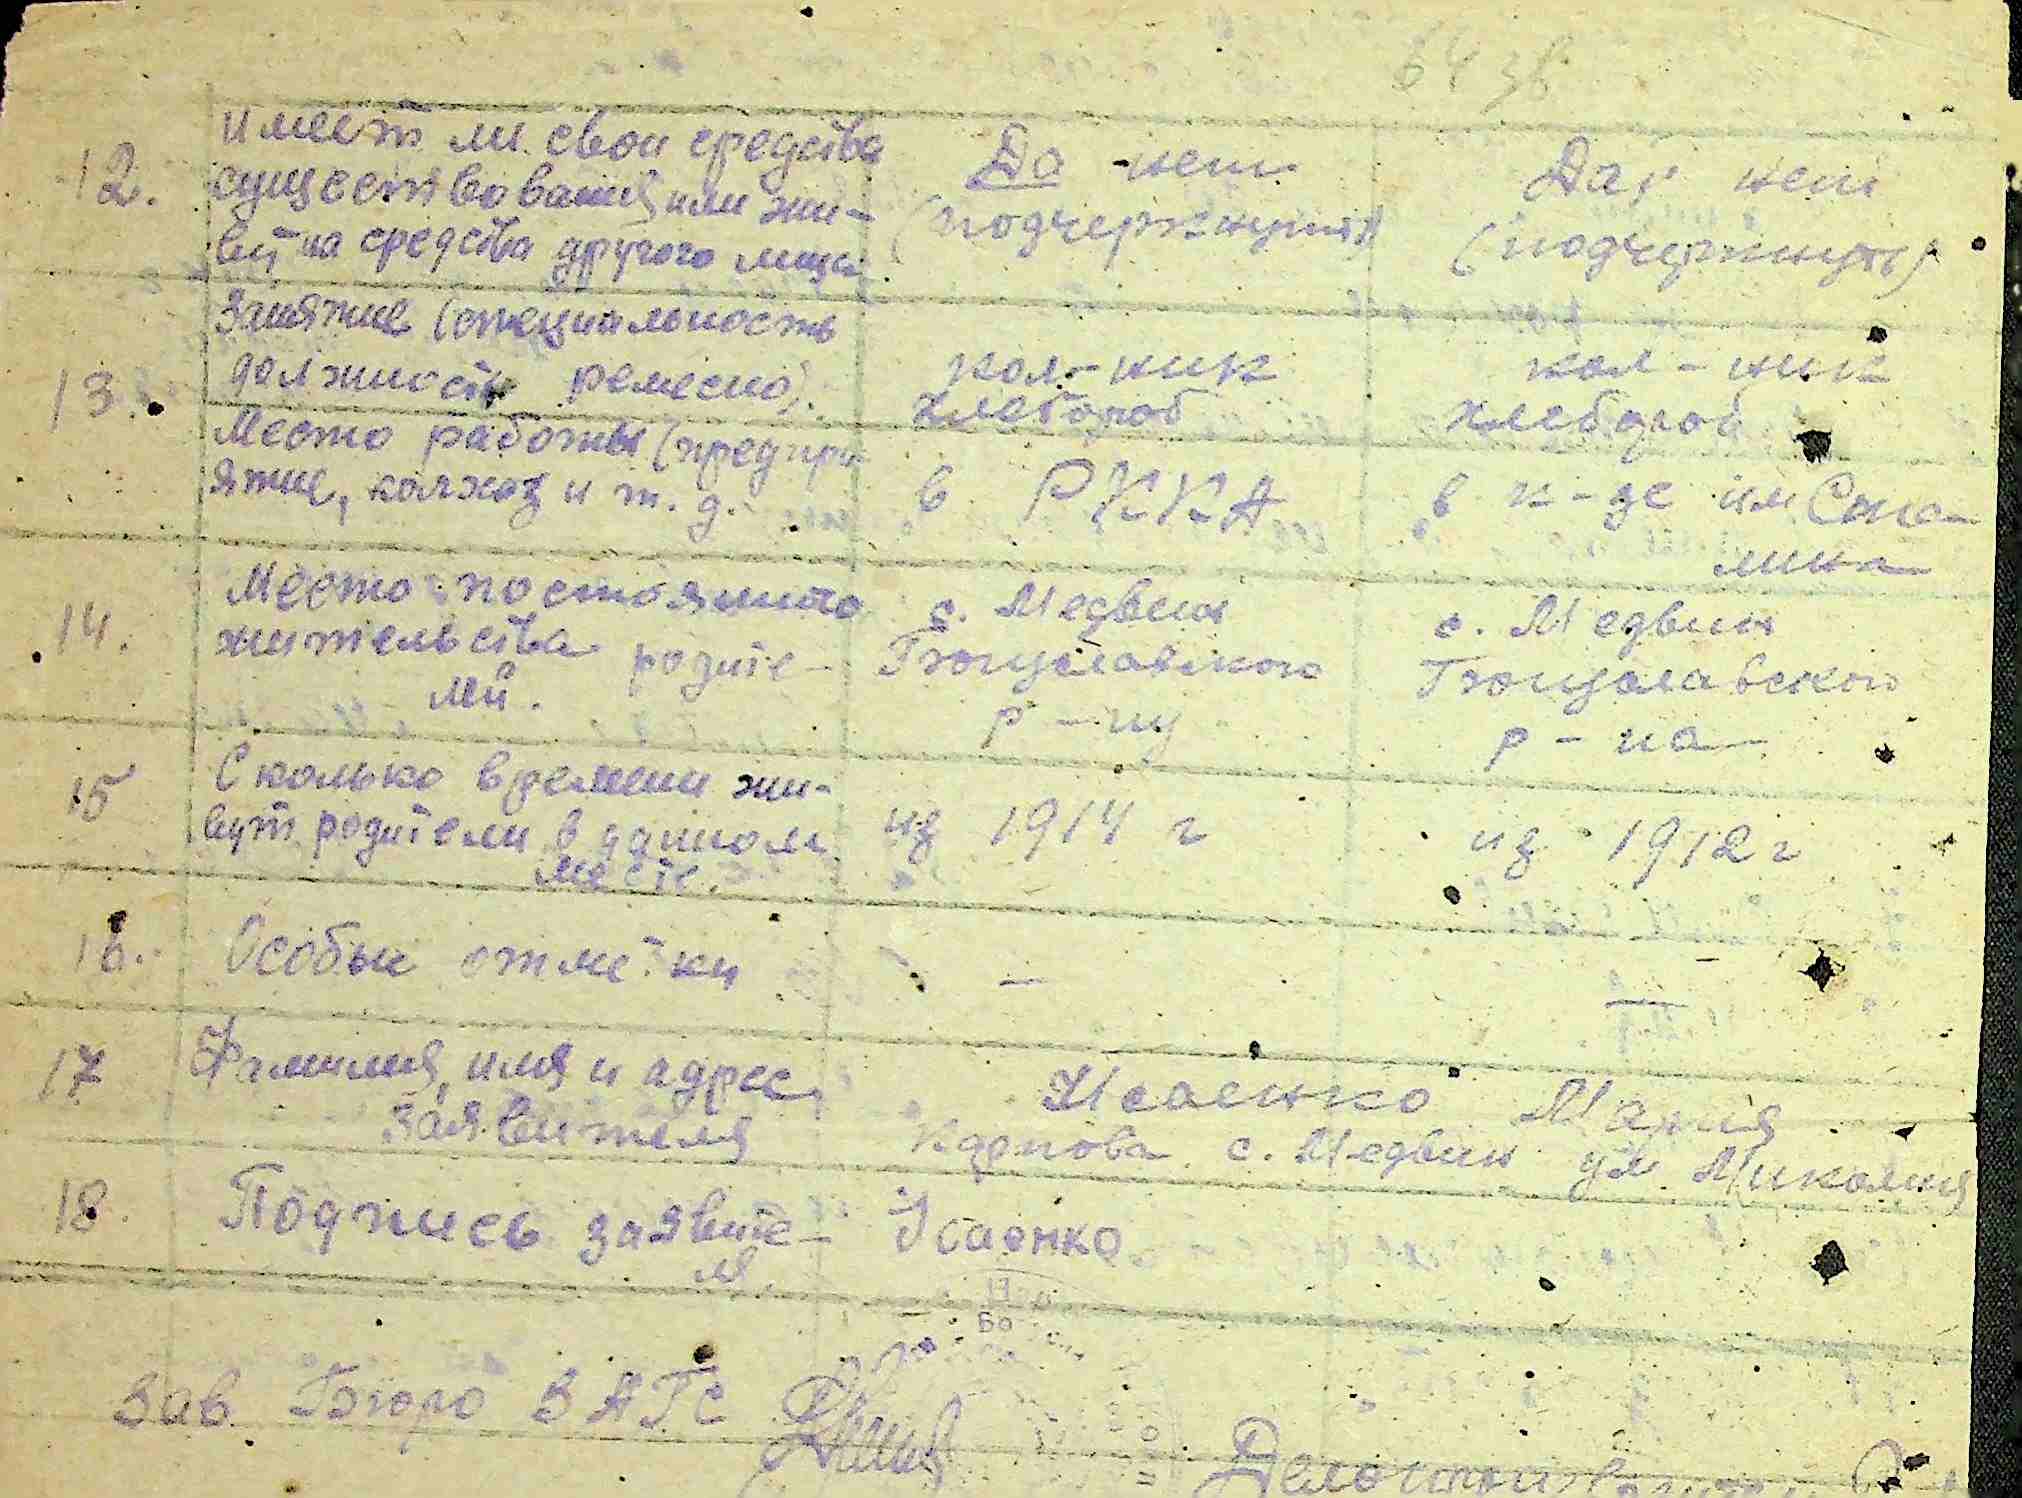 64 зв
12. имеет ли свои средства
существования или жи-
вёт на средства другого лица
Да нет
(подчеркнуть)
Да, нет
(подчеркнуть)
13. Занятие (специальность
должность ремесло).
кол-ник
хлебороб
кол-ник
хлебороб
Место работы (предпри
ятие, колхоз и т. д.
в РККА
в к-зе им Ста-
лина
14. Место постоянного
жительства родите-
лей.
с. Медвин
Богуславского
р-ну
с. Медвин
Богуславского
р-на
15 Сколько времени жи-
вут родители в данном
месте.
из 1914 г
из 1912 г
16. Особые отметки
—
—
17 Фамилия, имя и адрес
заявителя
Исаенко Мария
Карповна с. Медвин ул
18. Подпись заявите-
ля.
Исаенко
Зав Бюро ЗАГС